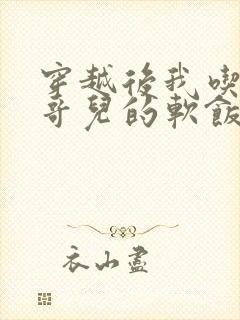 穿越後我喫
哥兒的軟飯
衣山盡